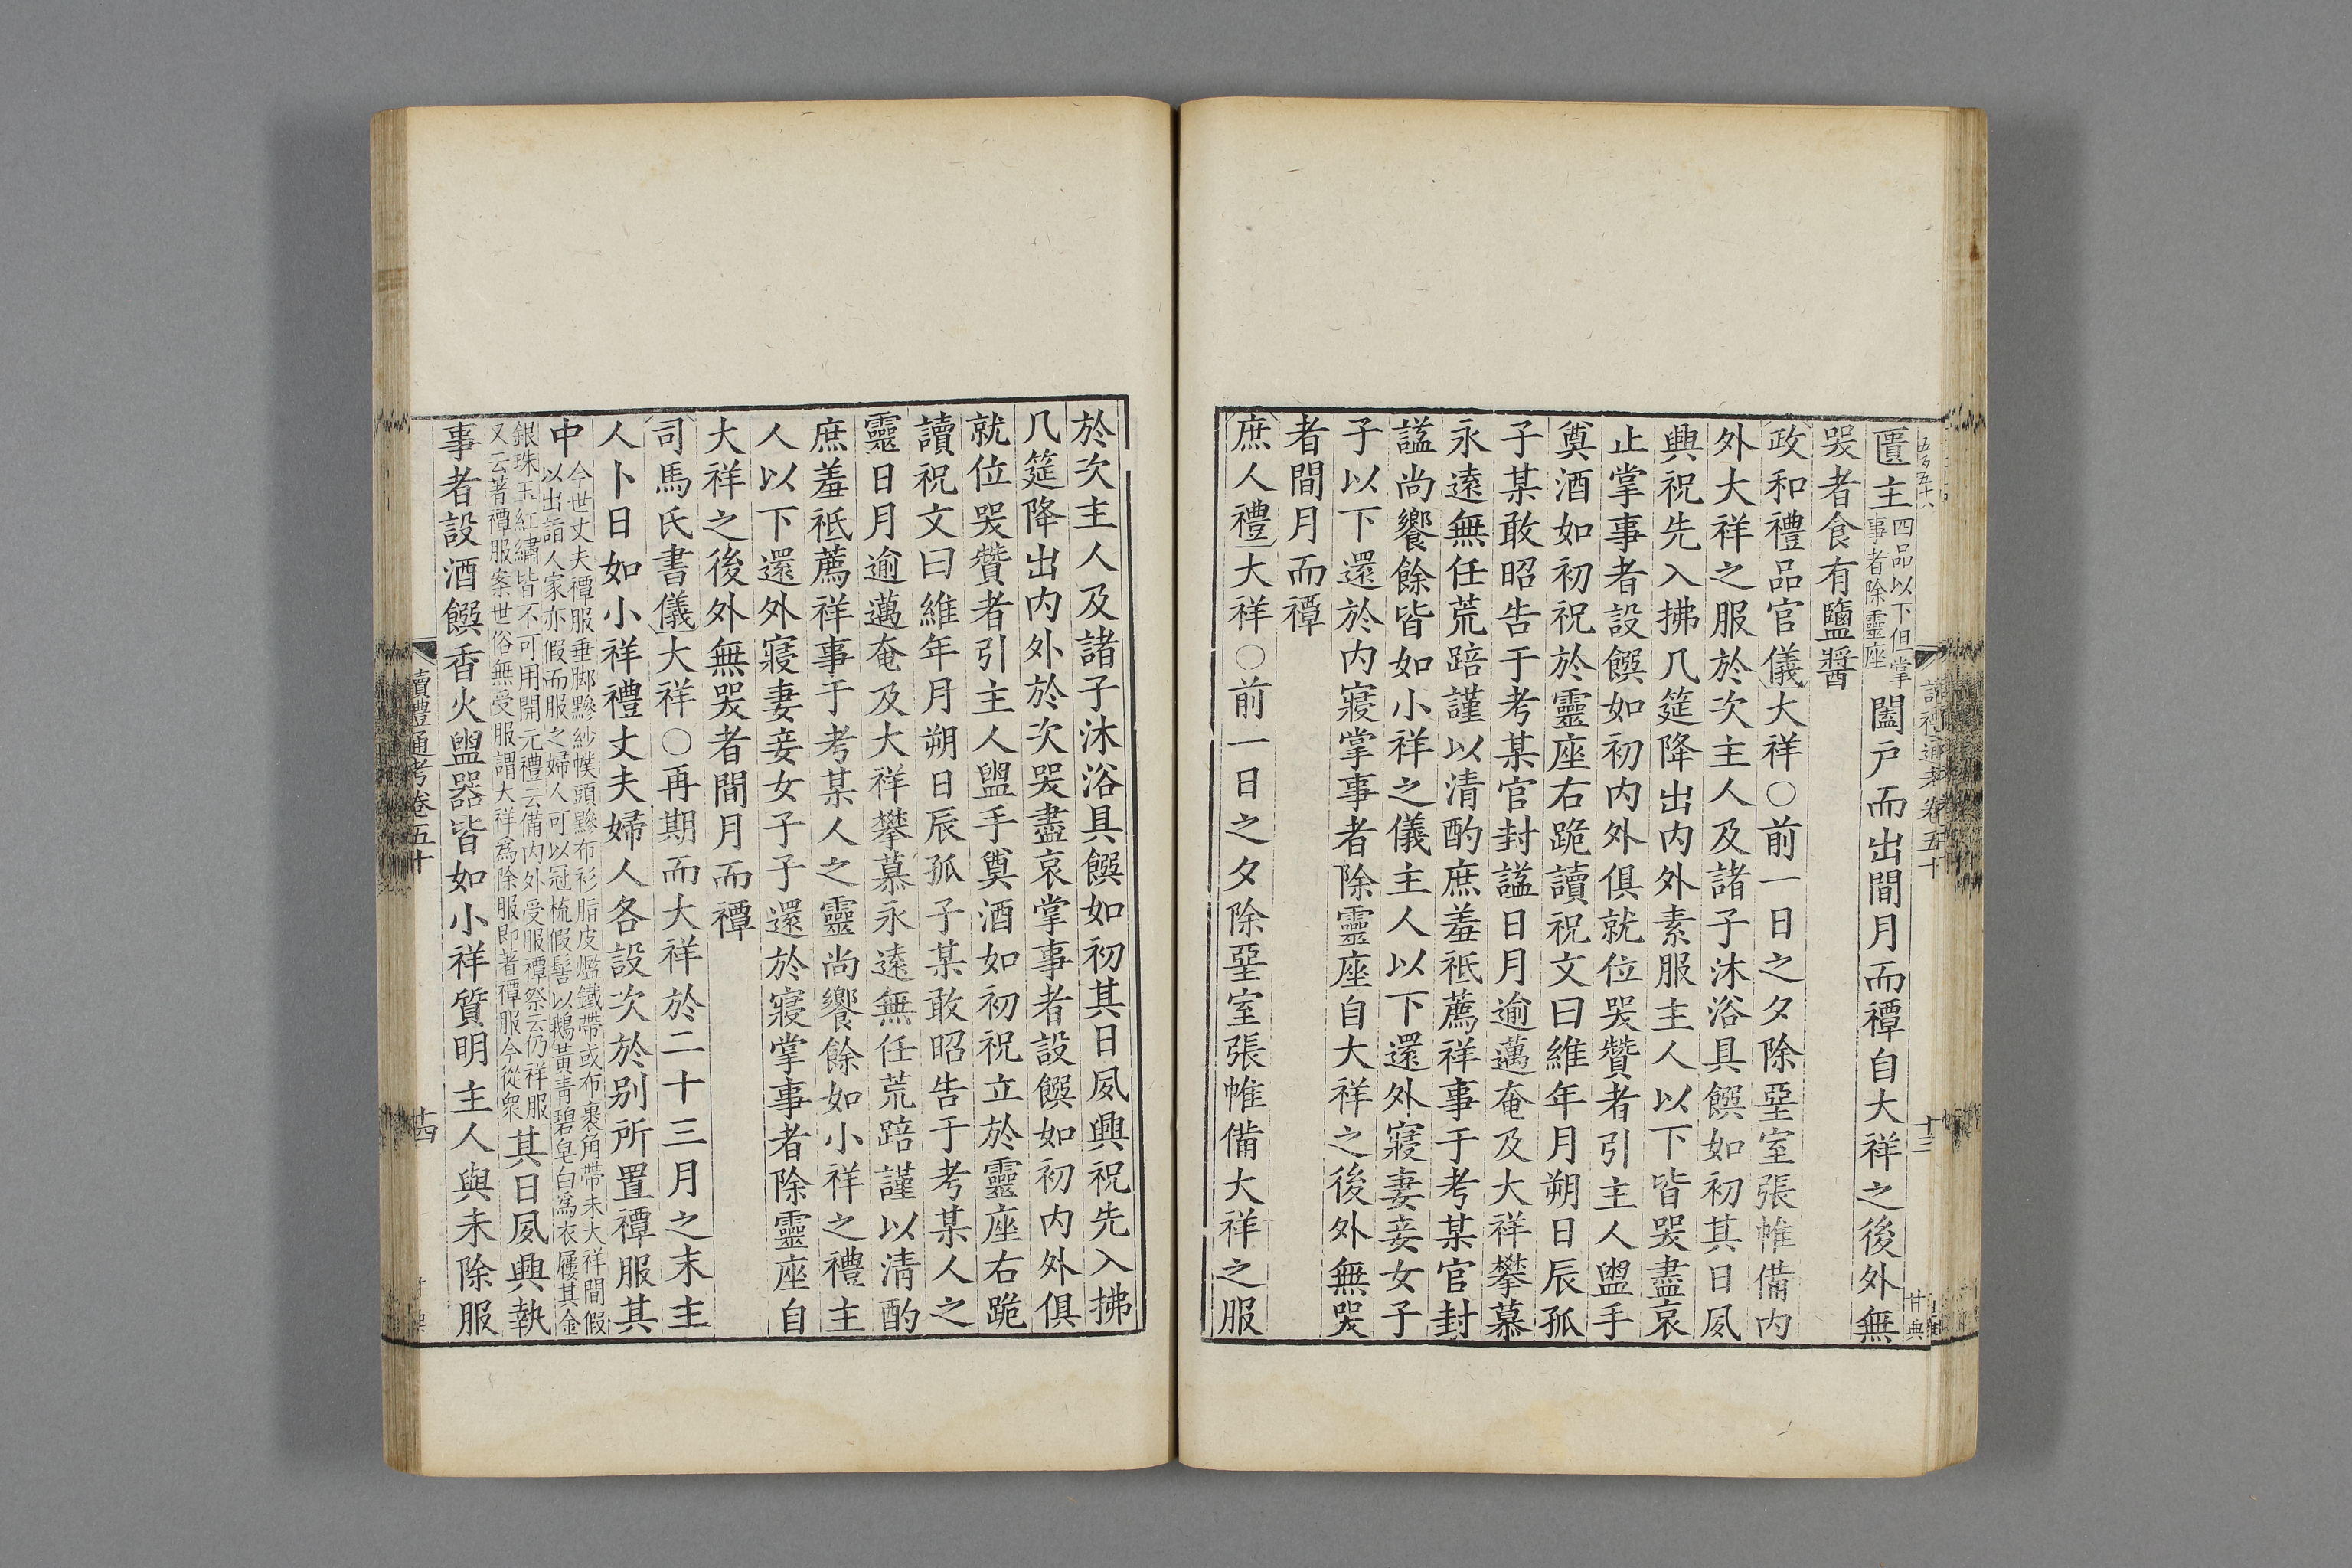 匱主四品以下但掌事者除靈座闔戸而出間月而禫自大祥之後外無
哭者食有鹽醬
政和禮品官儀大祥○前一日之夕除堊室張帷備内
外大祥之服於次主人及諸子沐浴具饌如初其日夙
興祝先入拂几筵降出内外素服主人以下皆哭盡哀
止掌事者設饌如初内外俱就位哭贊者引主人盥手
奠酒如初祝於靈座右跪讀祝文曰維年月朔日辰孤
子某敢昭告于考某官封諡日月逾邁奄及大祥攀慕
永遠無任荒踣謹以清酌庶羞祗薦祥事于考某官封
諡尚饗餘皆如小祥之儀主人以下還外寢妻妾女子
子以下還於内寢掌事者除靈座自大祥之後外無哭
者間月而禫
庶人禮大祥○前一日之夕除堊室張帷備大祥之服
於次主人及諸子沐浴具饌如初其日夙興祝先入拂
几筵降出内外於次哭盡哀掌事者設饌如初内外俱
就位哭贊者引主人盥手奠酒如初祝立於靈座右跪
讀祝文曰維年月朔日辰孤子某敢昭告于考某人之
靈日月逾邁奄及大祥攀慕永遠無任荒踣謹以清酌
庶羞祗薦祥事于考某人之靈尚饗餘如小祥之禮主
人以下還外寢妻妾女子子還於寢掌事者除靈座自
大祥之後外無哭者間月而禫
司馬氏書儀大祥○再期而大祥於二十三月之末主
人卜日如小祥禮丈夫婦人各設次於别所置禫服其
中今世丈夫禫服垂脚黪紗幞頭黪布衫脂皮爁鐵帶或布裹角帶未大祥間假以出詣人家亦假而服之婦人可以冠梳假髻以鵝黃青碧皂白爲衣履其金
銀珠玉紅繡皆不可用開元禮云備内外受服禫祭云仍祥服又云著禫服案世俗無受服謂大祥爲除服即著禫服今從衆其日夙興執
事者設酒饌香火盥器皆如小祥質明主人與未除服
讀禮通考卷五十
十四